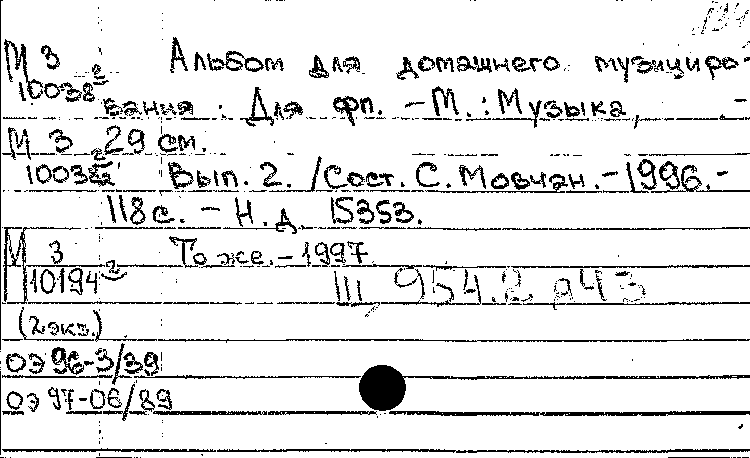 134
М 3 Альбом для домашнего музициро-
10038 2 вания : Для фп. – М. : Музыка, –
М 3 29 см.
10038 2 Вып. 2. / Сост. С. Мовчан. – 1996. –
118 с. – Н. д. 15353.
М 3 То же. – 1997.
10194 2 Щ 954.2 я43
(2 экз.)
ОЭ 96-3/39
ОЭ 97-06/89